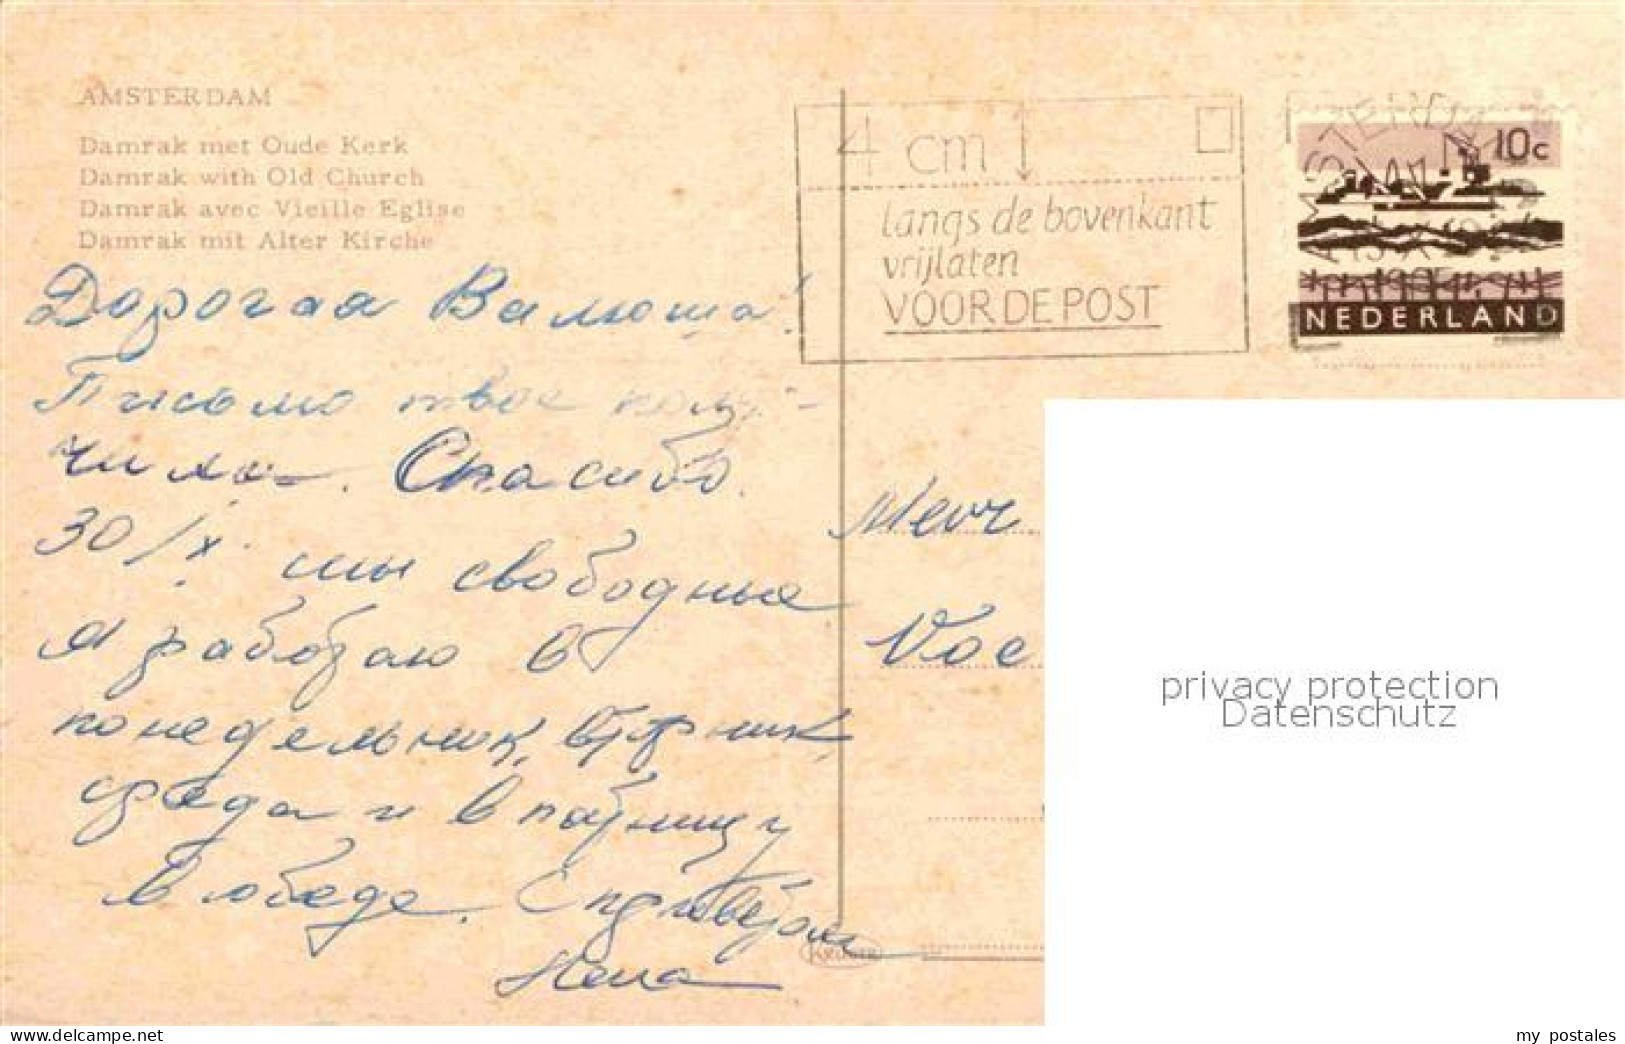 AMSTERDAM
Damrak met Oude Kerk
Damrak with Old Church
Damrak avec Vieille Eglise
Damrak mit Alter Kirche
4 cm
langs de bovenkant
vrijlaten
VOOR DE POST
10c
NEDERLAND
Дорогая Валюша!
Письмо твое полу-
чила. Спасибо.
30/X. мы свободные
Я работаю в
понедельник, вторник
среда и в пятницу
в обеде. С приветом
Нена
Mevr
Voe
privacy protection
Datenschutz
KRÜGER
www.delcampe.net
my_postales